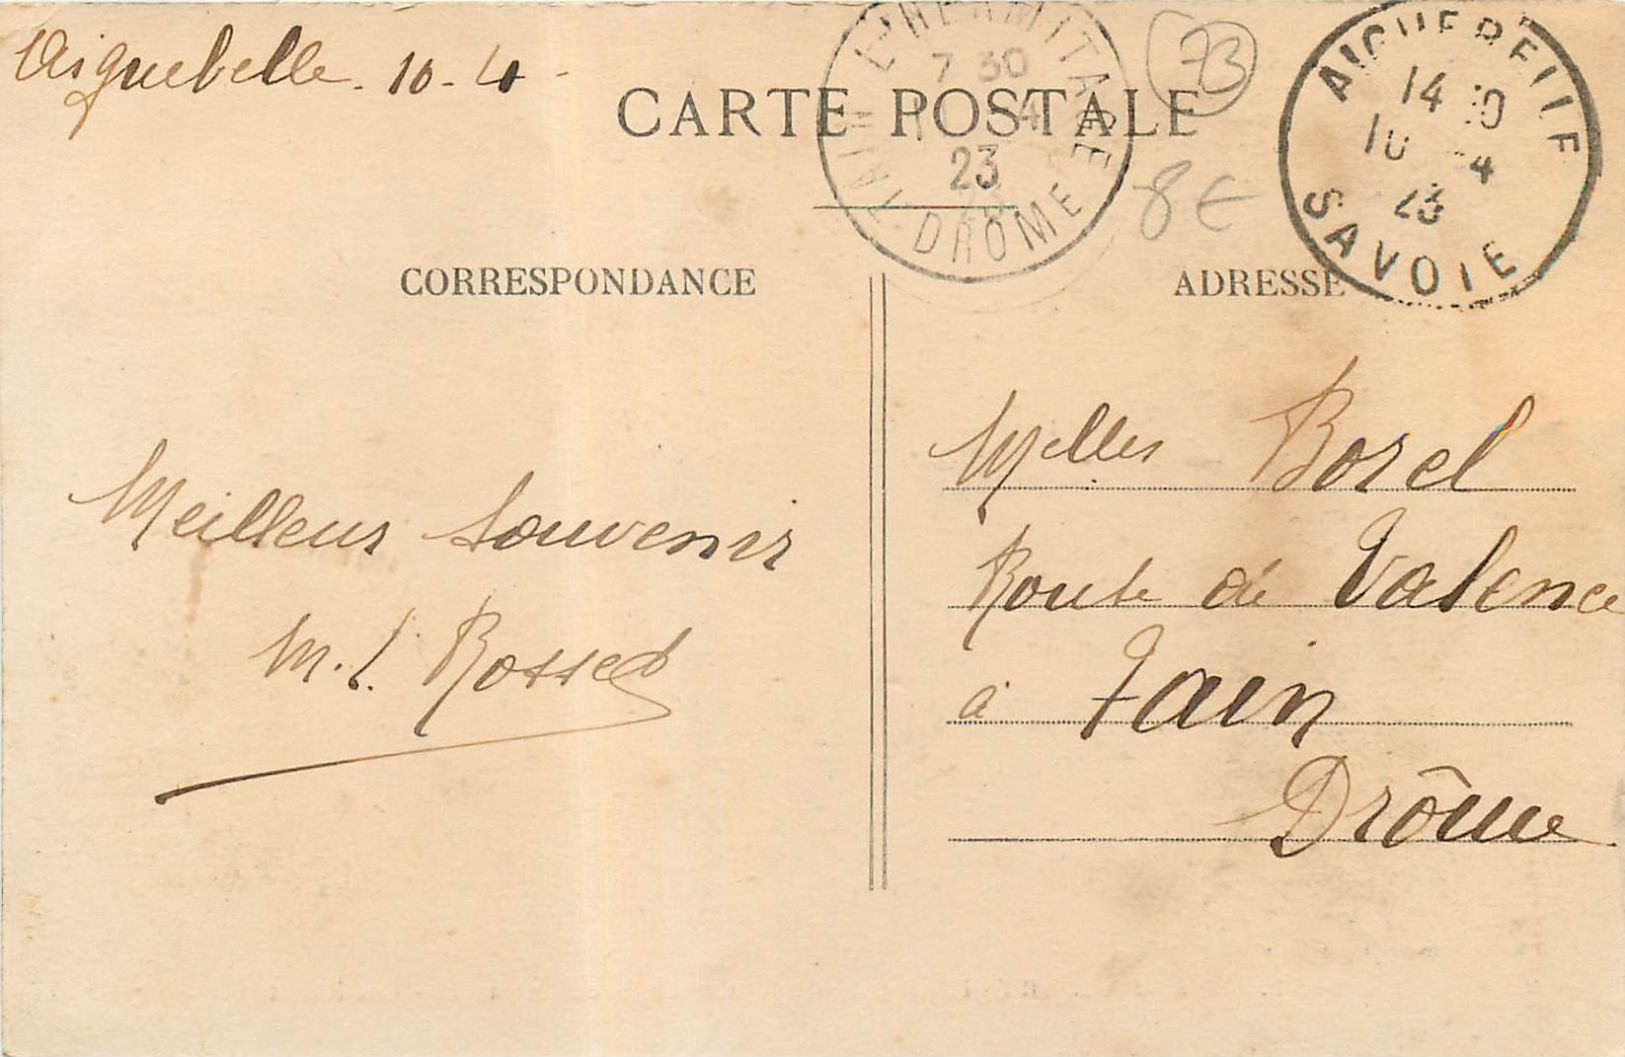 Aiguebelle. 10-4 -
TAIN L'HERMITAGE
7 30
4
23
DRÔME
73
AIGUEBELLE
14 10
10 -4
23
SAVOIE
CARTE POSTALE
8 €
CORRESPONDANCE
ADRESSE
Meilleur souvenir
M. L. Rosset
Melles Borel
Route de Valence
à Tain
Drôme